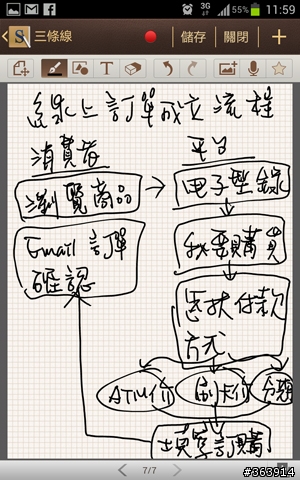 3G 55% 11:59
三條線 儲存 關閉
線上訂單成立流程
消費者 平台
瀏覽商品 電子型錄
Email 訂單
確認
我要購買
選擇付款
方式
ATM價 刷卡價 分期
填單訂購
7/7
#363914